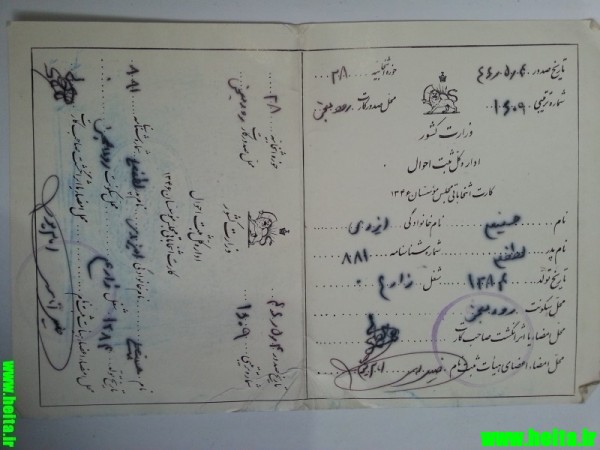 تاریخ صدور ۴۶٫۵٫۴ حوزه انتخابیه ۳۸
شماره ترتیبی ۱۶۰۹ محل صدور کارت رودمعجن
وزارت کشور
اداره کل ثبت احوال
کارت انتخاباتی مجلس مؤسسان ۱۳۴۶
نام حسینعلی نام خانوادگی ایزدی
نام پدر شماره شناسنامه ۸۸۱
تاریخ تولد ۱۲۸۴ شغل زارع
محل سکونت رودمعجن
محل امضاء یا اثر انگشت صاحب کارت
محل امضاء اعضای هیأت ثبت نام
حوزه انتخابیه ۳۸
محل صدور کارت رودمعجن
وزارت کشور
اداره کل ثبت احوال
کارت انتخاباتی مجلس مؤسسان ۱۳۴۶
تاریخ صدور ۴۶٫۵٫۴
شماره ترتیبی ۱۶۰۹
نام حسینعلی نام خانوادگی ایزدی نام پدر شماره شناسنامه ۸۸۱
تاریخ تولد ۱۲۸۴ شغل زارع محل سکونت رودمعجن
محل امضاء یا اثر انگشت صاحب کارت
محل امضاء اعضاء هیأت ثبت نام
www.heita.ir
www.heita.ir